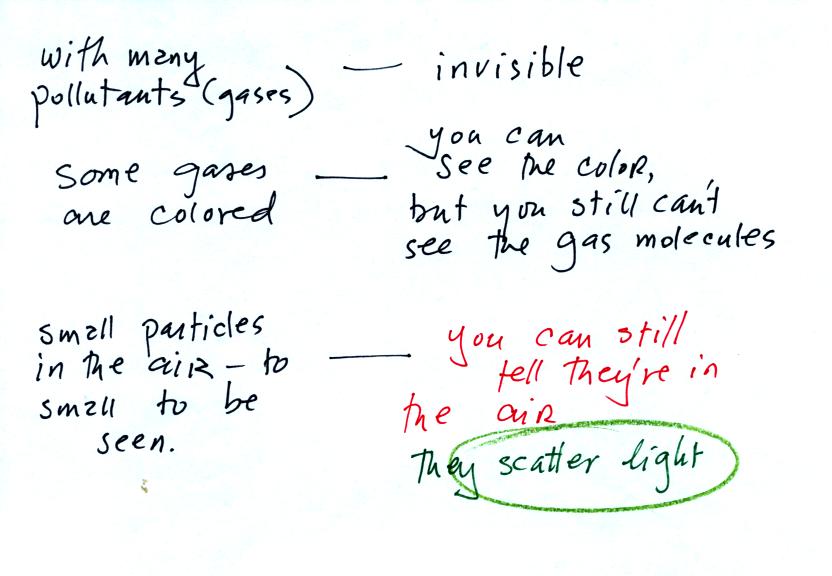 with many
pollutants (gases) — invisible
some gases
are colored — you can
see the color,
but you still can't
see the gas molecules
small particles
in the air — to
small to be
seen. — you can still
tell they're in
the air
they scatter light